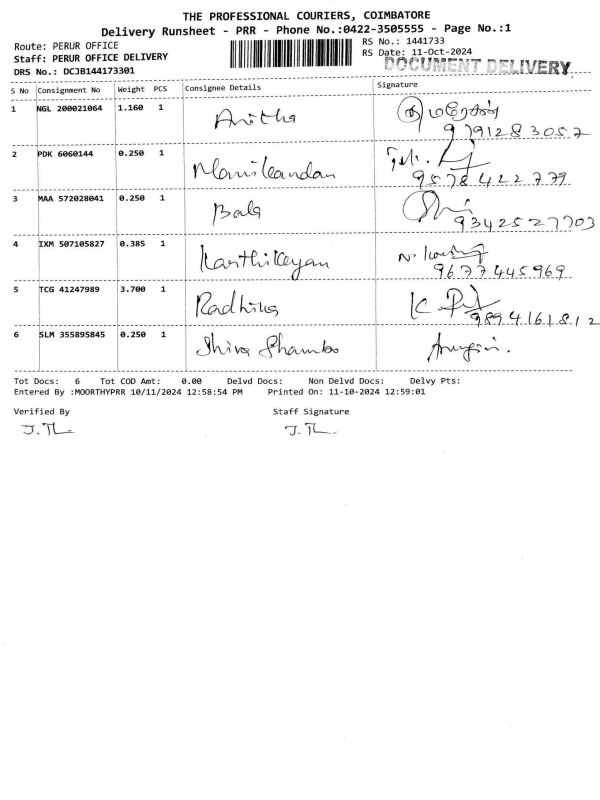 THE PROFESSIONAL COURIERS, COIMBATORE
Delivery Runsheet - PRR - Phone No.:0422-3505555 - Page No.:1
Route: PERUR OFFICE
RS No.: 1441733
Staff: PERUR OFFICE DELIVERY
RS Date: 11-Oct-2024
DRS No.: DCJB144173301
DOCUMENT DELIVERY
S No Consignment No Weight PCS Consignee Details Signature
1 NGL 200021064 1.160 1 Anitha குமரேசன்
9791283057
2 PDK 6060144 0.250 1 Manikandan
9578422779
3 MAA 572028041 0.250 1 Bala
9342527703
4 IXM 507105827 0.385 1 Karthikeyan
9677445969
5 TCG 41247989 3.700 1 Radhika
9894161812
6 SLM 355895845 0.250 1 Shiva Shambo
Tot Docs: 6 Tot COD Amt: 0.00 Delvd Docs: Non Delvd Docs: Delvy Pts:
Entered By :MOORTHYPRR 10/11/2024 12:58:54 PM Printed On: 11-10-2024 12:59:01
Verified By Staff Signature